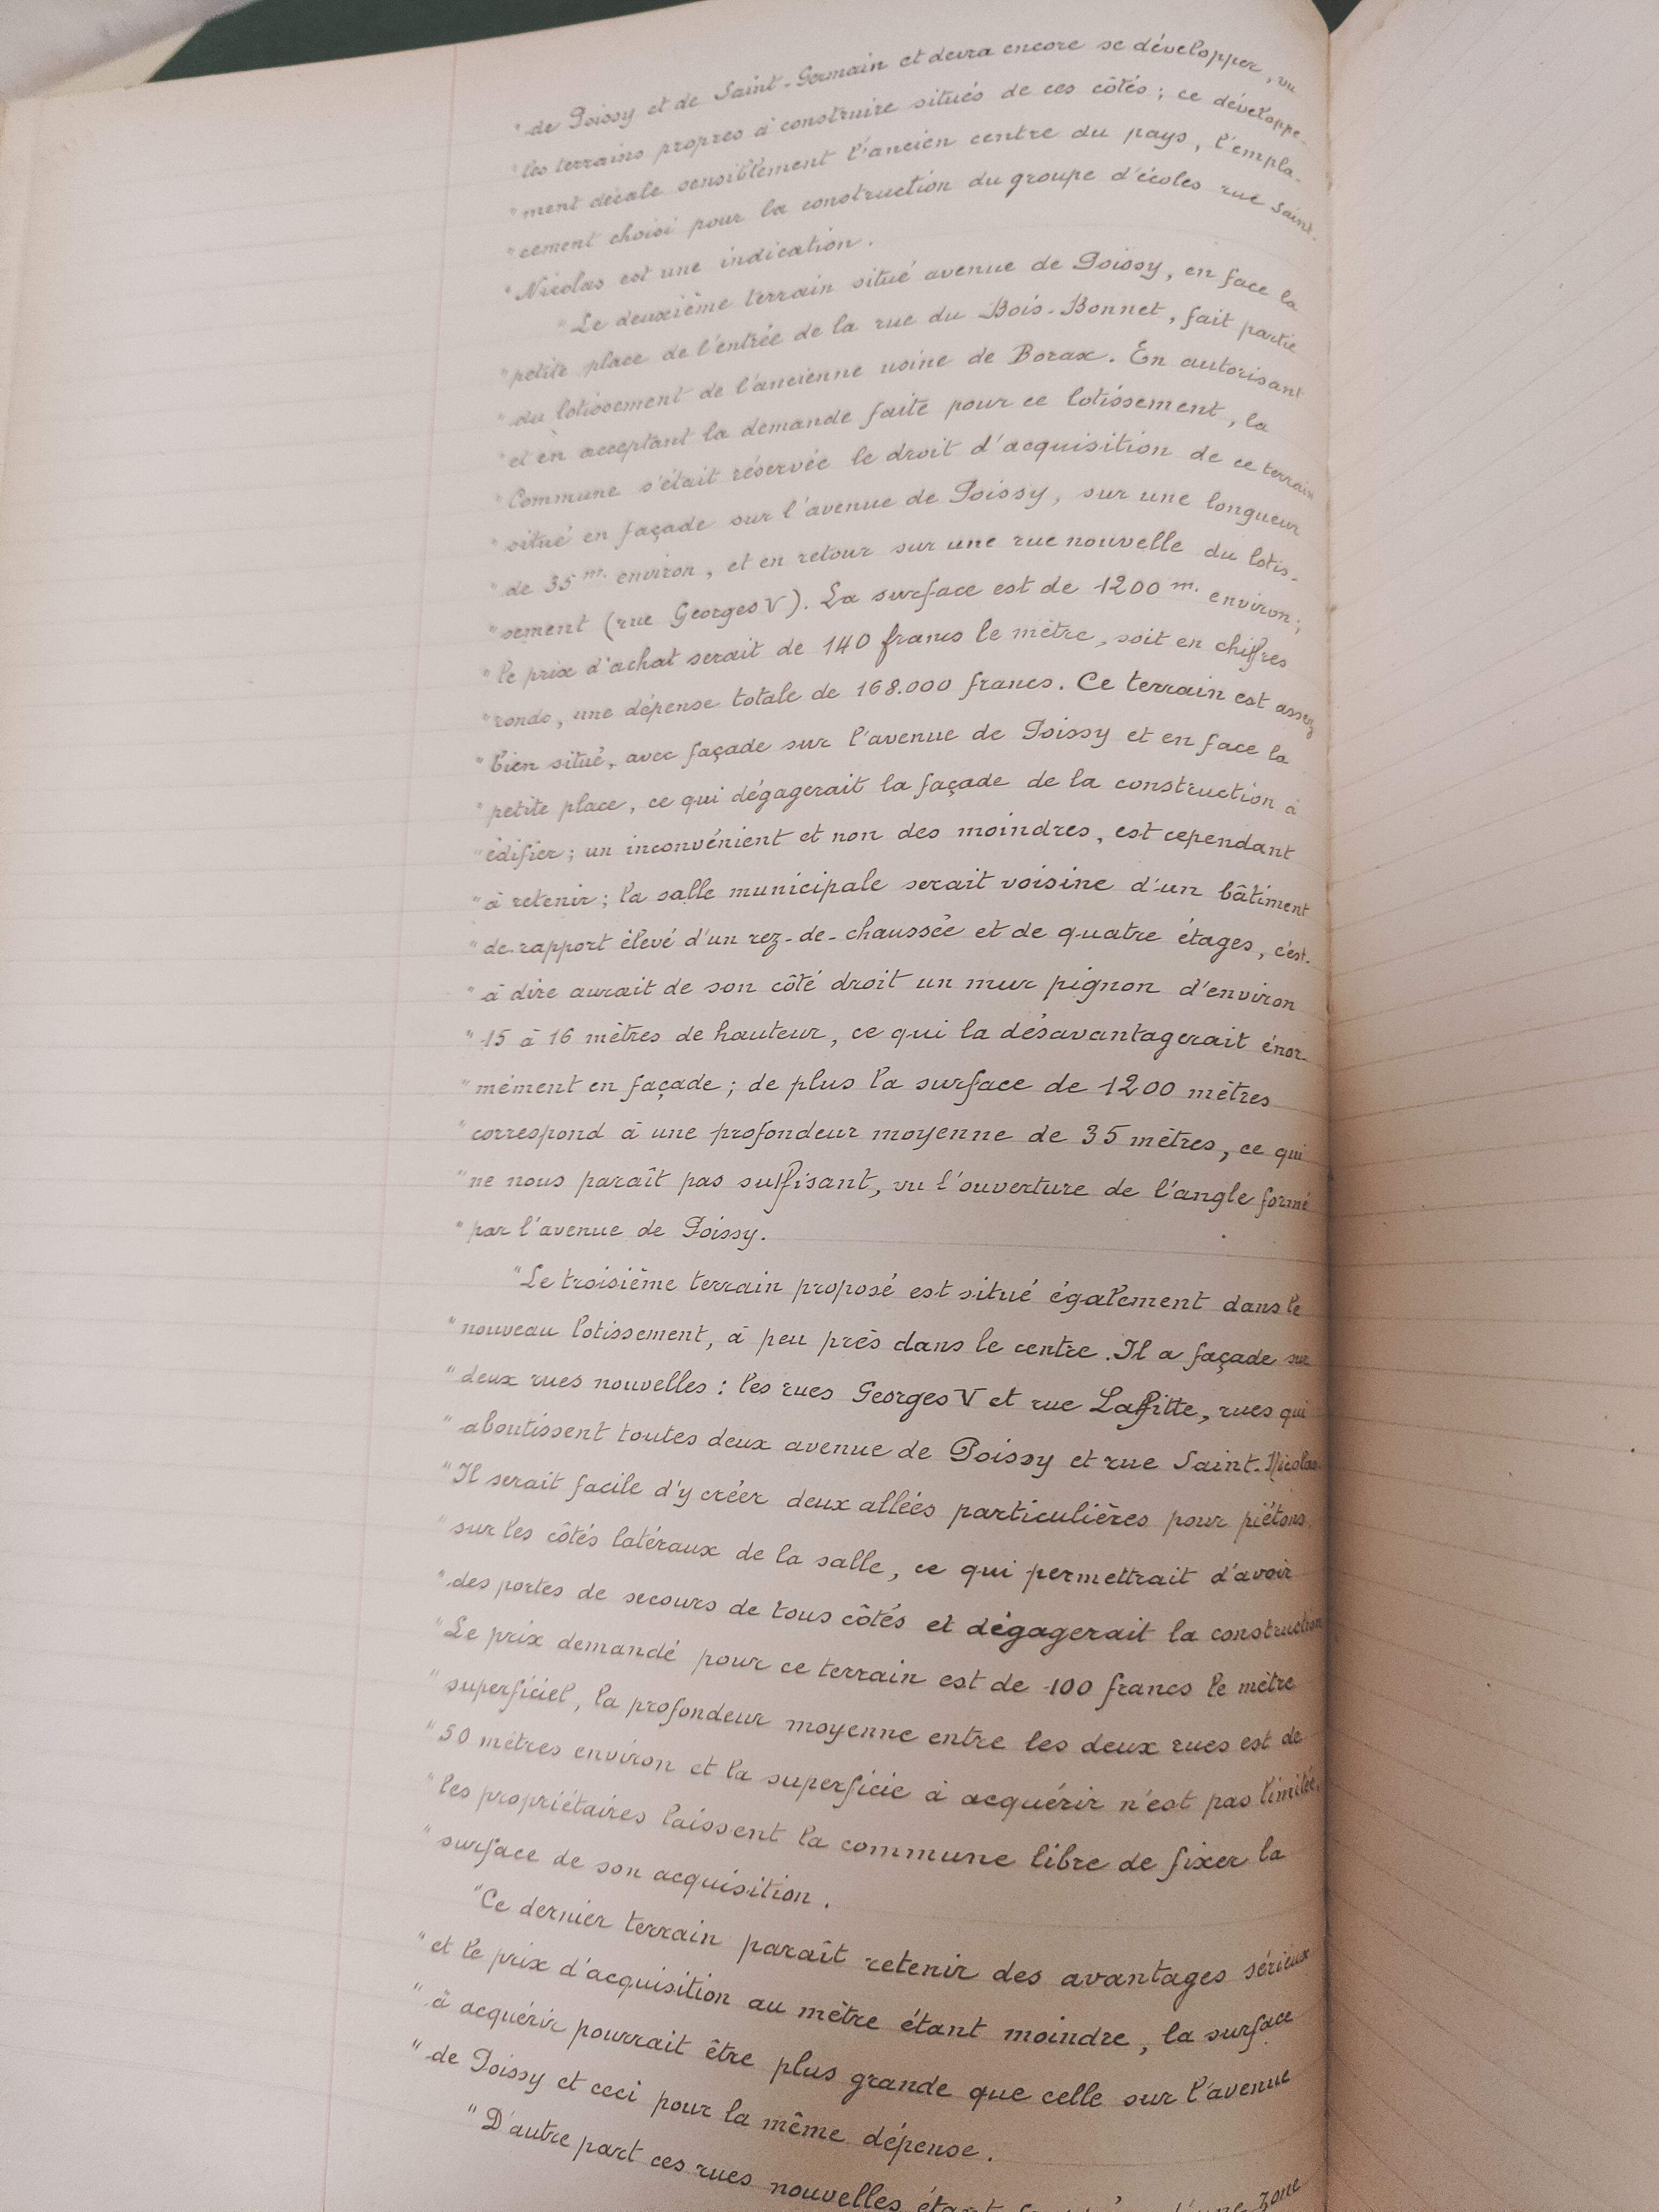 " de Poissy et de Saint-Germain et devra encore se développer, vu
" les terrains propres à construire situés de ces côtés ; ce développe-
" ment décale sensiblement l'ancien centre du pays, l'empla-
" cement choisi pour la construction du groupe d'écoles rue Saint-
" Nicolas est une indication.
" Le deuxième terrain situé avenue de Poissy, en face la
" petite place de l'entrée de la rue du Bois-Bonnet, fait partie
" du lotissement de l'ancienne usine de Borax. En autorisant
" et en acceptant la demande faite pour ce lotissement, la
" Commune s'était réservée le droit d'acquisition de ce terrain
" situé en façade sur l'avenue de Poissy, sur une longueur
" de 35 m. environ, et en retour sur une rue nouvelle du lotis-
" sement (rue Georges V). La surface est de 1200 m. environ ;
" le prix d'achat serait de 140 francs le mètre, soit en chiffres
" ronds, une dépense totale de 168.000 francs. Ce terrain est assez
" bien situé, avec façade sur l'avenue de Poissy et en face la
" petite place, ce qui dégagerait la façade de la construction à
" édifier ; un inconvénient et non des moindres, est cependant
" à retenir ; la salle municipale serait voisine d'un bâtiment
" de rapport élevé d'un rez-de-chaussée et de quatre étages, c'est-
" à dire aurait de son côté droit un mur pignon d'environ
" 15 à 16 mètres de hauteur, ce qui la désavantagerait énor-
" mément en façade ; de plus la surface de 1200 mètres
" correspond à une profondeur moyenne de 35 mètres, ce qui
" ne nous paraît pas suffisant, vu l'ouverture de l'angle formé
" par l'avenue de Poissy.
" Le troisième terrain proposé est situé également dans le
" nouveau lotissement, à peu près dans le centre. Il a façade sur
" deux rues nouvelles : les rues Georges V et rue Laffitte, rues qui
" aboutissent toutes deux avenue de Poissy et rue Saint-Nicolas.
" Il serait facile d'y créer deux allées particulières pour piétons,
" sur les côtés latéraux de la salle, ce qui permettrait d'avoir
" des portes de secours de tous côtés et dégagerait la construction
" Le prix demandé pour ce terrain est de 100 francs le mètre
" superficiel, la profondeur moyenne entre les deux rues est de
" 50 mètres environ et la superficie à acquérir n'est pas limitée,
" les propriétaires laissent la commune libre de fixer la
" surface de son acquisition.
" Ce dernier terrain paraît retenir des avantages sérieux
" et le prix d'acquisition au mètre étant moindre, la surface
" à acquérir pourrait être plus grande que celle sur l'avenue
" de Poissy et ceci pour la même dépense.
" D'autre part ces rues nouvelles étant zone